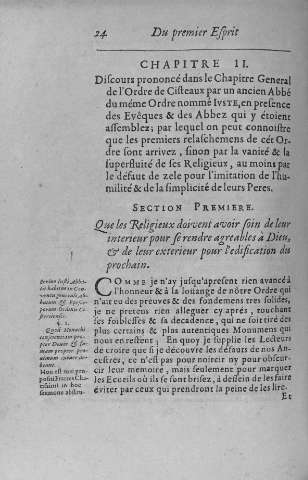 24 Du premier Esprit
CHAPITRE II.
Discours prononcé dans le Chapitre General
de l'Ordre de Cisteaux par un ancien Abbé
du méme Ordre nommé IVSTE, en presence
des Evéques & des Abbez qui y étoient
assemblez; par lequel on peut connoistre
que les premiers relaschemens de cét Or-
dre sont arrivez, sinon par la vanité & la
superfluité de ses Religieux, au moins par
le défaut de zele pour l'imitation de l'hu-
milité & de la simplicité de leurs Peres.
SECTION PREMIERE.
Que les Religieux doivent avoir soin de leur
interieur pour se rendre agreables à Dieu,
& de leur exterieur pour l'edification du
prochain.
COMME je n'ay jusqu'apresent rien avancé à
l'honneur & à la louange de nôtre Ordre qui
n'ait eu des preuves & des fondemens tres solides,
je ne pretens rien alleguer cy aprés, touchant
ses foiblesses & sa decadence, qui ne soit tiré des
plus certains & plus autentiques Monumens qui
nous en restent; En quoy je supplie les Lecteurs
de croire que si je découvre les défauts de nos An-
cestres, ce n'est pas pour noircir ny pour obscur-
cir leur memoire, mais seulement pour marquer
les Ecueils où ils se sont brisez, à dessein de les faire
éviter par ceux qui prendront la peine de les lire.
Et
Sermo Iusti Abba-
tis habitus in Con-
ventu
Quod Monachi
propter Deum & for-
mam propter pro-
ximum
bent.
sermone